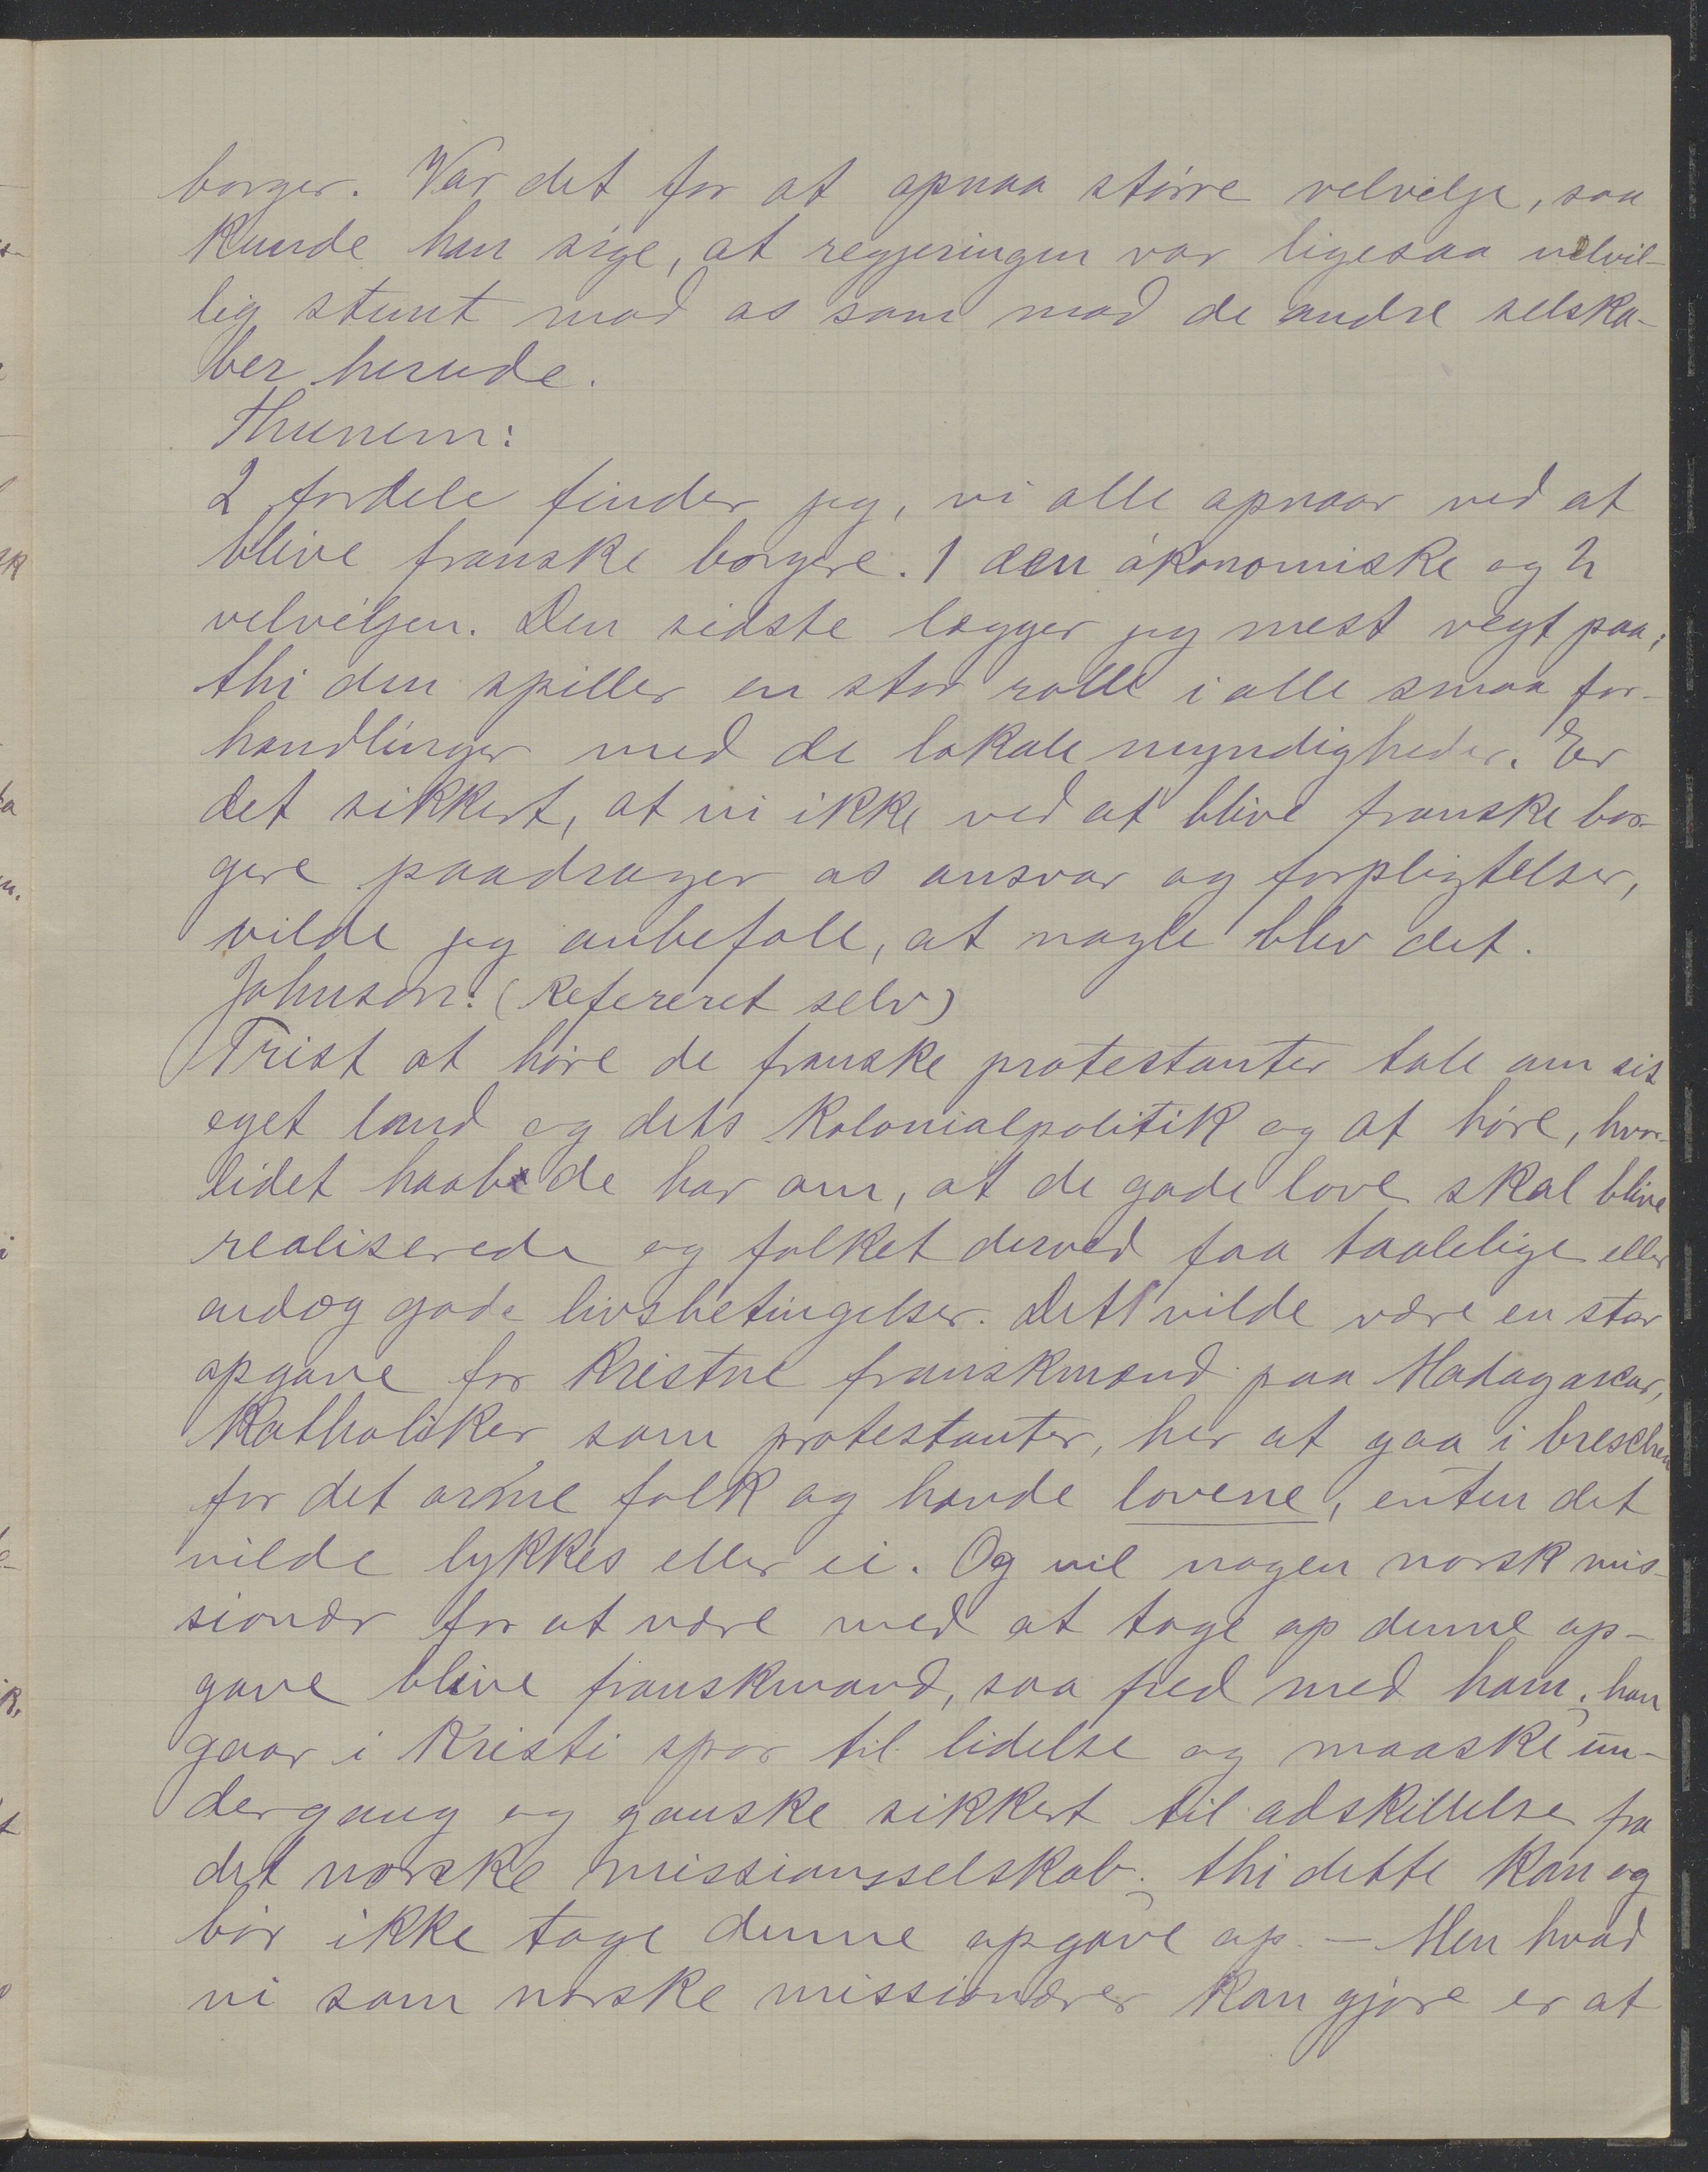 borger. Var det for at opnaa større velvilje, saa
kunde han sige, at regjeringen var ligesaa velvil-
lig stemt mod os som mod de andre selska-
ber herude.
Thunem:
2 fordele finder jeg, vi alle opnaar ved at
blive franske borgere. 1 den økonomiske og 2
velviljen. Den sidste lægger jeg mest vegt paa;
thi den spiller en stor rolle i alle smaa for-
handlinger med de lokale myndigheder. Er
det sikkert, at vi ikke ved at blive franske bor-
gere paadrager os ansvar og forpligtelser,
vilde jeg anbefale, at nogle blev det.
Johnson: (Refereret selv)
Trist at høre de franske protestanter tale om sit
eget land og dets kolonialpolitik og at høre, hvor
lidet haab de har om, at de gode love skal blive
realiserede og folket derved faa taalelige eller
endog gode livsbetingelser. Det vilde være en stor
opgave for kristne franskmænd paa Madagaskar,
katholiker som protestanter, her at gaa i breschen
for det arme folk og hævde lovene, enten det
vilde lykkes eller ei. Og vil nogen norsk mis-
sionær for at være med at tage op denne op-
gave blive franskmand, saa fred med ham; han
gaar i Kristi spor til lidelse og maaske un-
dergang og ganske sikkert til adskillelse fra
det norske missionsselskab; thi dette kan og
bør ikke tage denne opgave op. – Men hvad
vi som norske missionærer kan gjøre er at